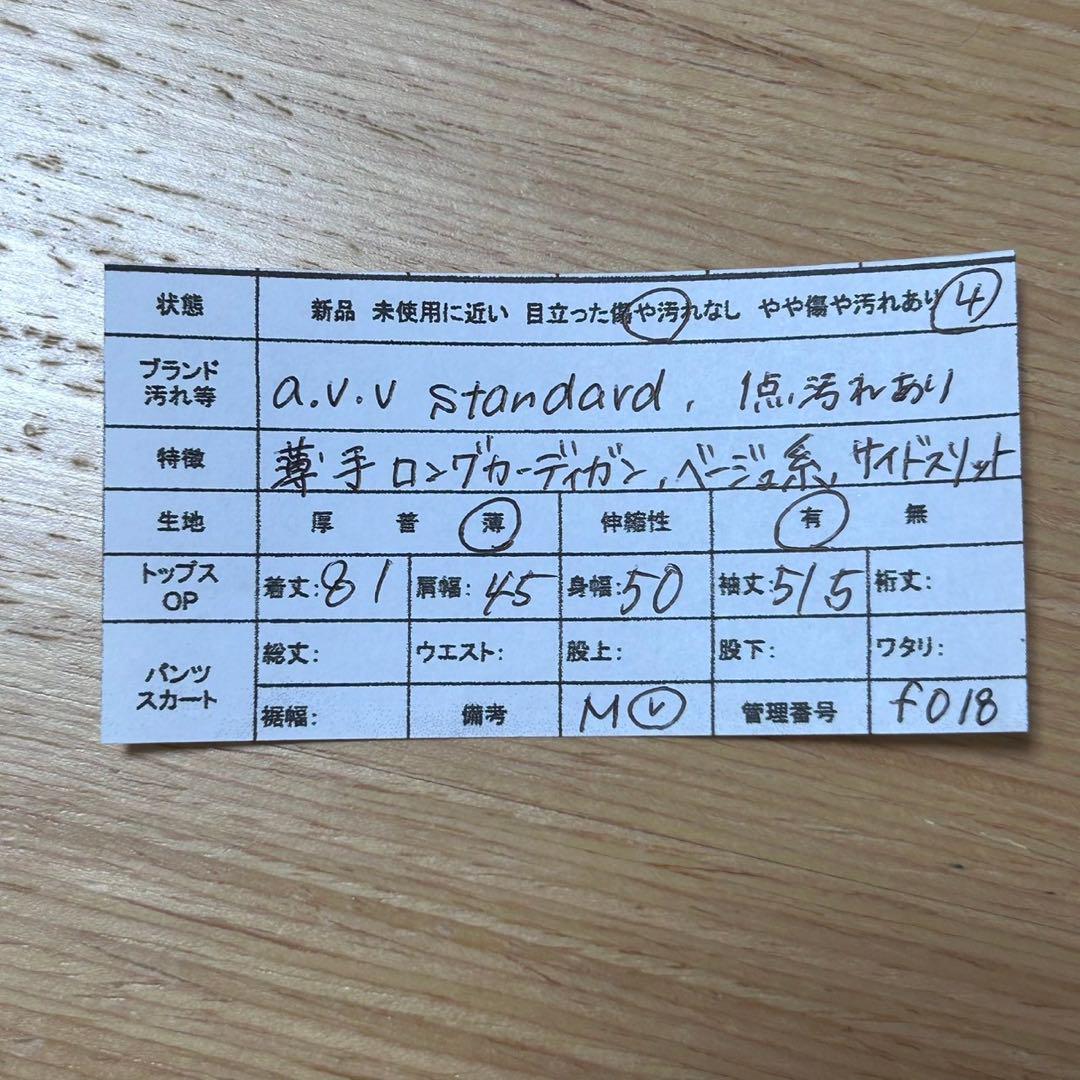 状態 新品 未使用に近い 目立った傷や汚れなし やや傷や汚れあり 4
ブランド
汚れ等
a.v.v standard, 1点汚れあり
特徴 薄手ロングカーディガン、ベージュ系、サイドスリット
生地 厚 普 薄 伸縮性 有 無
トップス
OP
着丈:81 肩幅:45 身幅:50 袖丈:515 裄丈:
パンツ
スカート
総丈: ウエスト: 股上: 股下: ワタリ:
裾幅: 備考 M v 管理番号 f018